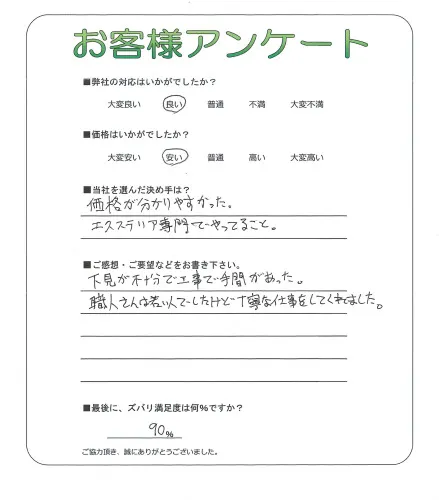 お客様アンケート
■弊社の対応はいかがでしたか？
大変良い 良い 普通 不満 大変不満
■価格はいかがでしたか？
大変安い 安い 普通 高い 大変高い
■当社を選んだ決め手は？
価格が分かりやすかった。
エクステリア専門でやってること。
■ご感想・ご要望などをお書き下さい。
下見が不十分で工事で手間があった。
職人さんは若い人でしたけど丁寧な仕事をしてくれました。
■最後に、ズバリ満足度は何％ですか？
90％
ご協力頂き、誠にありがとうございました。